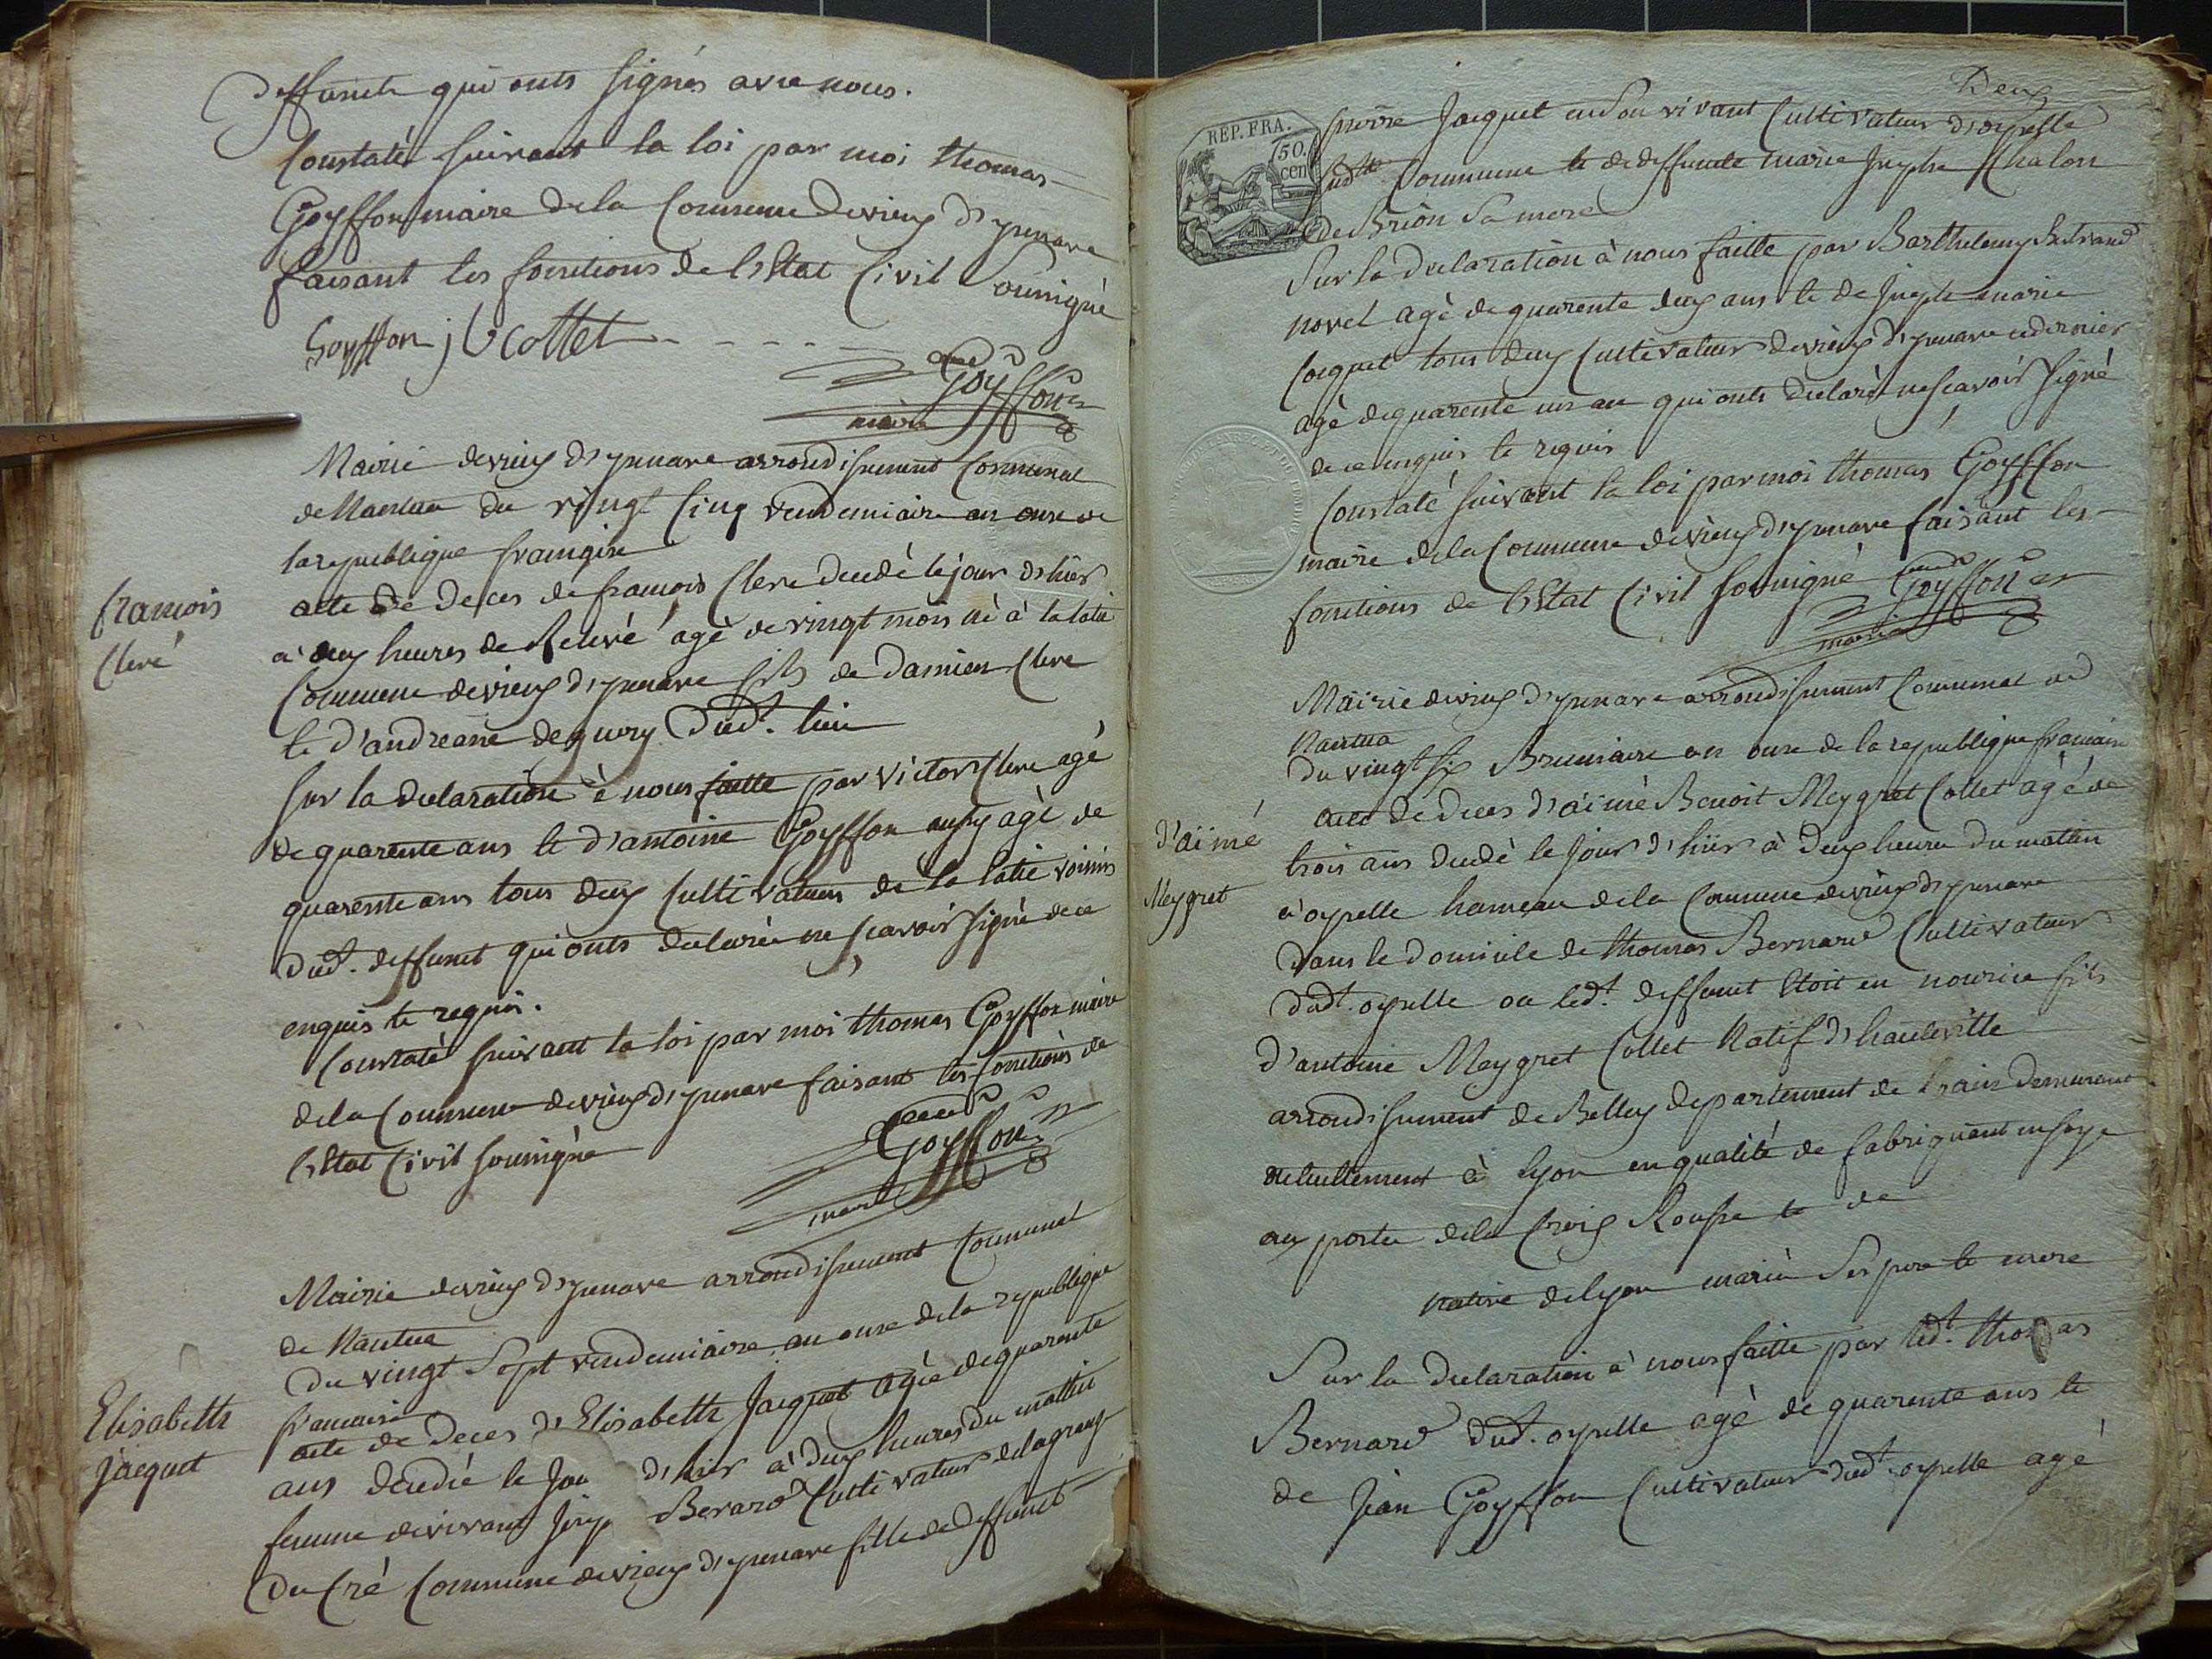 deffuncte qui onts signés avec nous.
Constaté suivant la loi par moi thomas
Goyffon maire de la Commune de vieux d'yzenave
faisant les fonctions de l'Etat Civil soussigné
Goyffon j b Cottet
Goyffon
maire
Mairie de vieux d'yzenave arrondissement Communal
de Nantua du vingt cinq vendemiaire an onze de
la republique française
françois
Clerc
acte de deces de françois Clerc decedé le jour d'hier
a deux heures de Relevé agé de vingt mois né à la latie
Commune de vieux d'yzenave fils de damien Clerc
et d'andreane deguery dudt. lieu
sur la declaration à nous faitte par victor Clerc agé
de quarente ans et d'antoine Goyffon aussy agé de
quarente ans tous deux Cultivateurs de la latie voisins
dudt. deffunct qui onts declarée ne scavoir signé de ce
enquis et requis.
Constaté suivant la loi par moi thomas Goyffon maire
de la Commune de vieux d'yzenave faisant les fonctions de
l'Etat Civil soussigné
Goyffon
maire
Mairie de vieux d'yzenave arrondissement Communal
de Nantua
Du vingt Sept vendemiaire an onze de la republique
francaise
Elisabeth
jacquet
acte de deces d'Elisabeth Jacquet agée de quarente
ans decedée le Jou d'hier à deux heures du mattin
femme de vivant Josep Berard Cultivateur de la grange
du Cré Commune de vieux d'yzenave fille de deffunct
Deux
REP. FRA.
50.
cen
pierre Jacquet en son vivant Cultivateur d'oyselle
susdte Commune et de deffuncte marie Josephe Chalon
de Brion sa mere
Sur la declaration à nous faitte par Barthelemy Bertrand
novel agé de quarente deux ans et de Joseph marie
Jacquet tous deux Cultivateur de vieux d'yzenave ce dernier
agé de quarente un an qui onts declaré ne scavoir signé
de ce enquis et requis
Constaté suivant la loi par moi thomas Goyffon
maire de la Commune de vieux d'yzenave faisant les
fonctions de l'Etat Civil soussigné
Goyffon
maire
Mairie de vieux d'yzenave arrondissement Communal de
Nantua
Du vingt six Brumaire an onze de la republique francaise
d'aimé
Meygret
acte de deces d'aimé Benoit Meygret Collet agé de
trois ans decedé le Jour d'hier à deux heures du mattin
a oyselle hameau de la Commune de vieux d'yzenave
dans le domicile de thomas Bernard Cultivateur
dudt. oyselle ou ledt. deffunct Etoit en nourice fils
d'antoine Meygret Collet Natif d'hauteville
arrondissement de Belley departement de l'ain demeurant
actuellement à lyon en qualité de fabriquant en soye
aux portes de la Croix Rousse et de
native de lyon mariés ses pere et mere
Sur la declaration à nous faitte par ledt. thomas
Bernard dudt. oyselle agé de quarente ans et
de Jean Goyffon Cultivateur dudt. oyselle agé